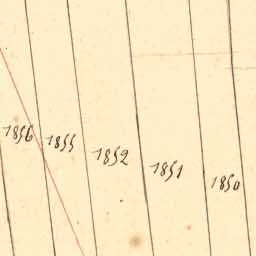 1856 1855 1852 1851 1850